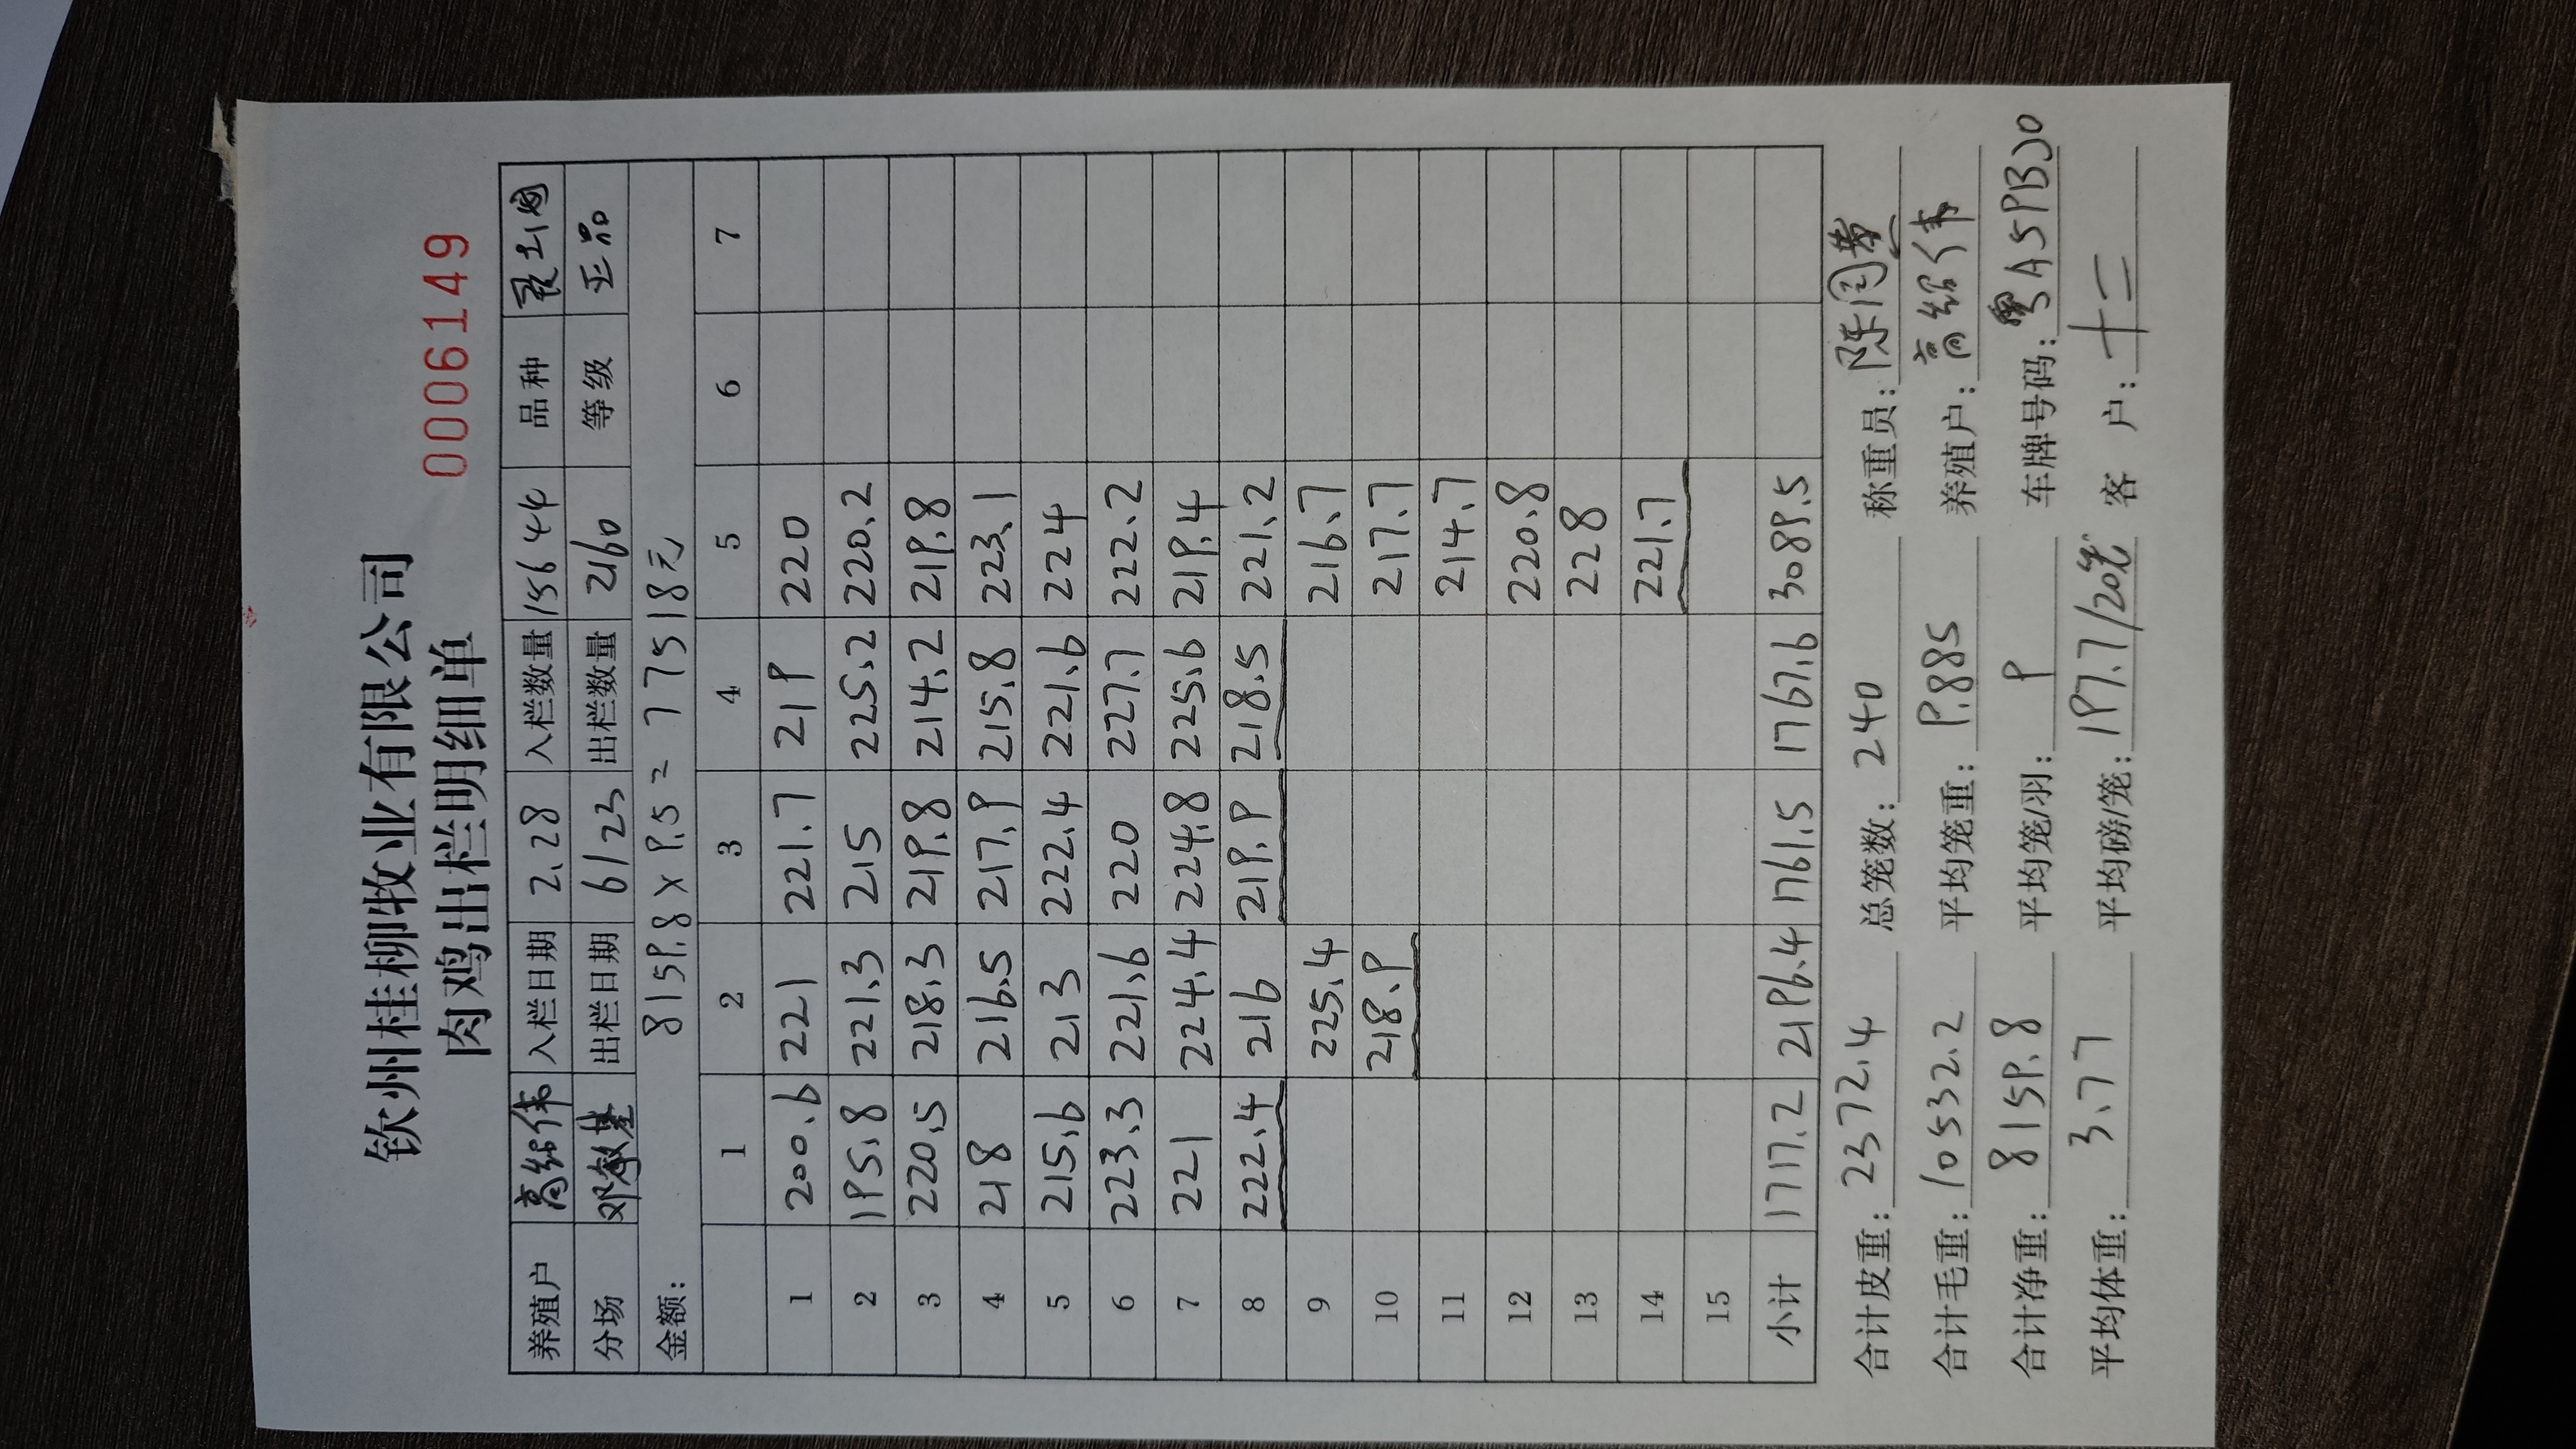 钦州桂柳牧业有限公司
肉鸡出栏明细单
0006149
养殖户 高绍伟 入栏日期 2.28 入栏数量 15644 品种
分场 出栏日期 6/23 出栏数量 2160 等级 正品
金额: 8159.8 × 9.5 = 77518元
1 2 3 4 5 6 7
1 200.6 221 221.7 219 220
2 195.8 221.3 215 225.2 220.2
3 220.5 218.3 219.8 214.2 219.8
4 218 216.5 217.9 215.8 223.1
5 215.6 213 222.4 221.6 224
6 223.3 221.6 220 227.7 222.2
7 221 224.4 224.8 225.6 219.4
8 222.4 216 219.9 218.5 221.2
9 225.4 216.7
10 218.9 217.7
11 214.7
12 220.8
13 228
14 221.7
15
小计 1717.2 2196.4 1761.5 1767.6 3089.5
合计皮重: 2372.4 总笼数: 240 称重员:
合计毛重: 10532.2 平均笼重: 9.885 养殖户: 高绍伟
合计净重: 8159.8 平均笼/羽: 9 车牌号码:
平均体重: 3.77 平均磅/笼: 197.7/20笼 客 户: 十二